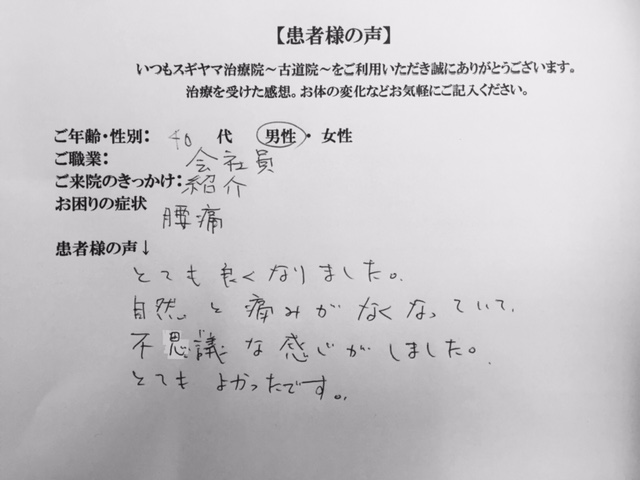 【患者様の声】
いつもスギヤマ治療院～古道院～をご利用いただき誠にありがとうございます。
治療を受けた感想。お体の変化などお気軽にご記入ください。
ご年齢・性別： 40 代 男性・女性
ご職業： 会社員
ご来院のきっかけ：紹介
お困りの症状 腰痛
患者様の声↓
とても良くなりました。
自然と痛みがなくなっていて、
不思議な感じがしました。
とてもよかったです。